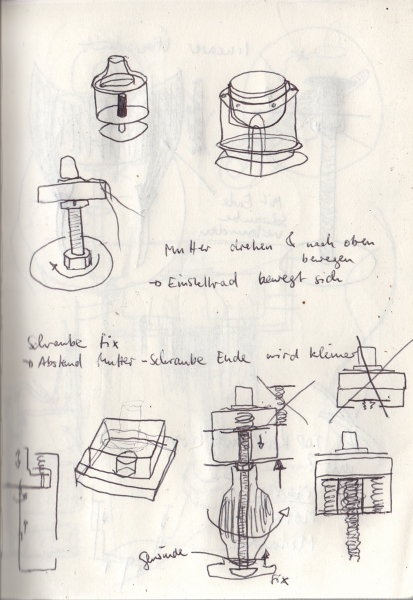 Mutter drehen & nach oben
bewegen
→ Einstellrad bewegt sich
Schraube fix
→ Abstand Mutter - Schraube Ende wird kleiner
Gewinde
fix